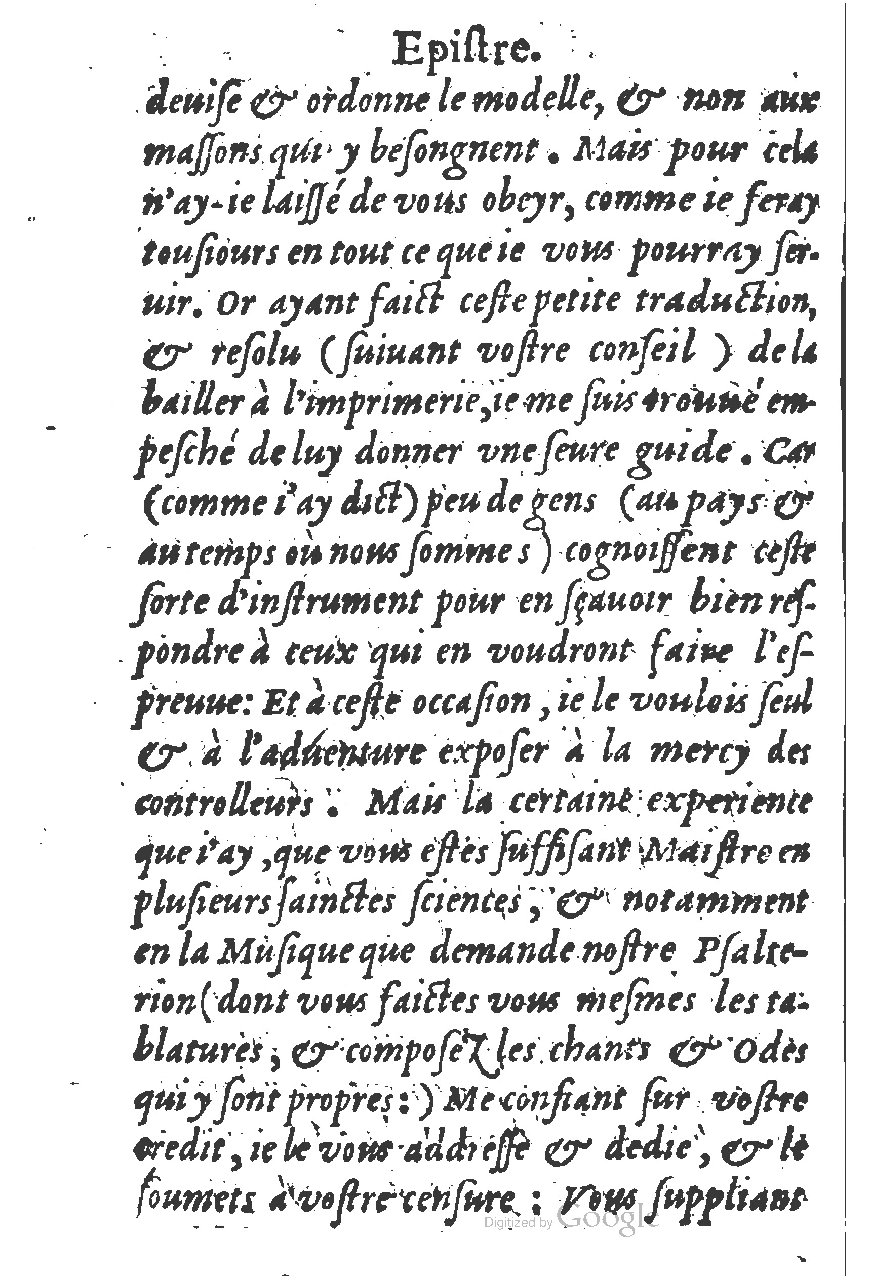 Epiſtre.
deuiſe & ordonne le modelle, & non aux
maſſons qui y beſongnent. Mais pour cela
n'ay-ie laiſſé de vous obeyr, comme ie feray
touſiours en tout ce que ie vous pourray ſer-
uir. Or ayant faict ceſte petite traduction,
& reſolu (ſuiuant voſtre conſeil) de la
bailler à l'imprimerie, ie me ſuis trouué em-
peſché de luy donner vne ſeure guide. Car
(comme i'ay dict) peu de gens (au pays &
au temps où nous ſommes) cognoiſſent ceſte
ſorte d'inſtrument pour en ſçauoir bien reſ-
pondre à ceux qui en voudront faire l'eſ-
preuue: Et à ceſte occaſion, ie le voulois ſeul
& à l'aduenture expoſer à la mercy des
controlleurs: Mais la certaine experience
que i'ay, que vous eſtes ſuffiſant Maiſtre en
pluſieurs ſainctes ſciences, & notamment
en la Muſique que demande noſtre Pſalte-
rion (dont vous faictes vous meſmes les ta-
blatures, & compoſez les chants & Odes
qui y ſont propres:) Me confiant ſur voſtre
credit, ie le vous addreſſe & dedie, & le
ſoumets à voſtre cenſure: Vous ſuppliant
Digitized by Google